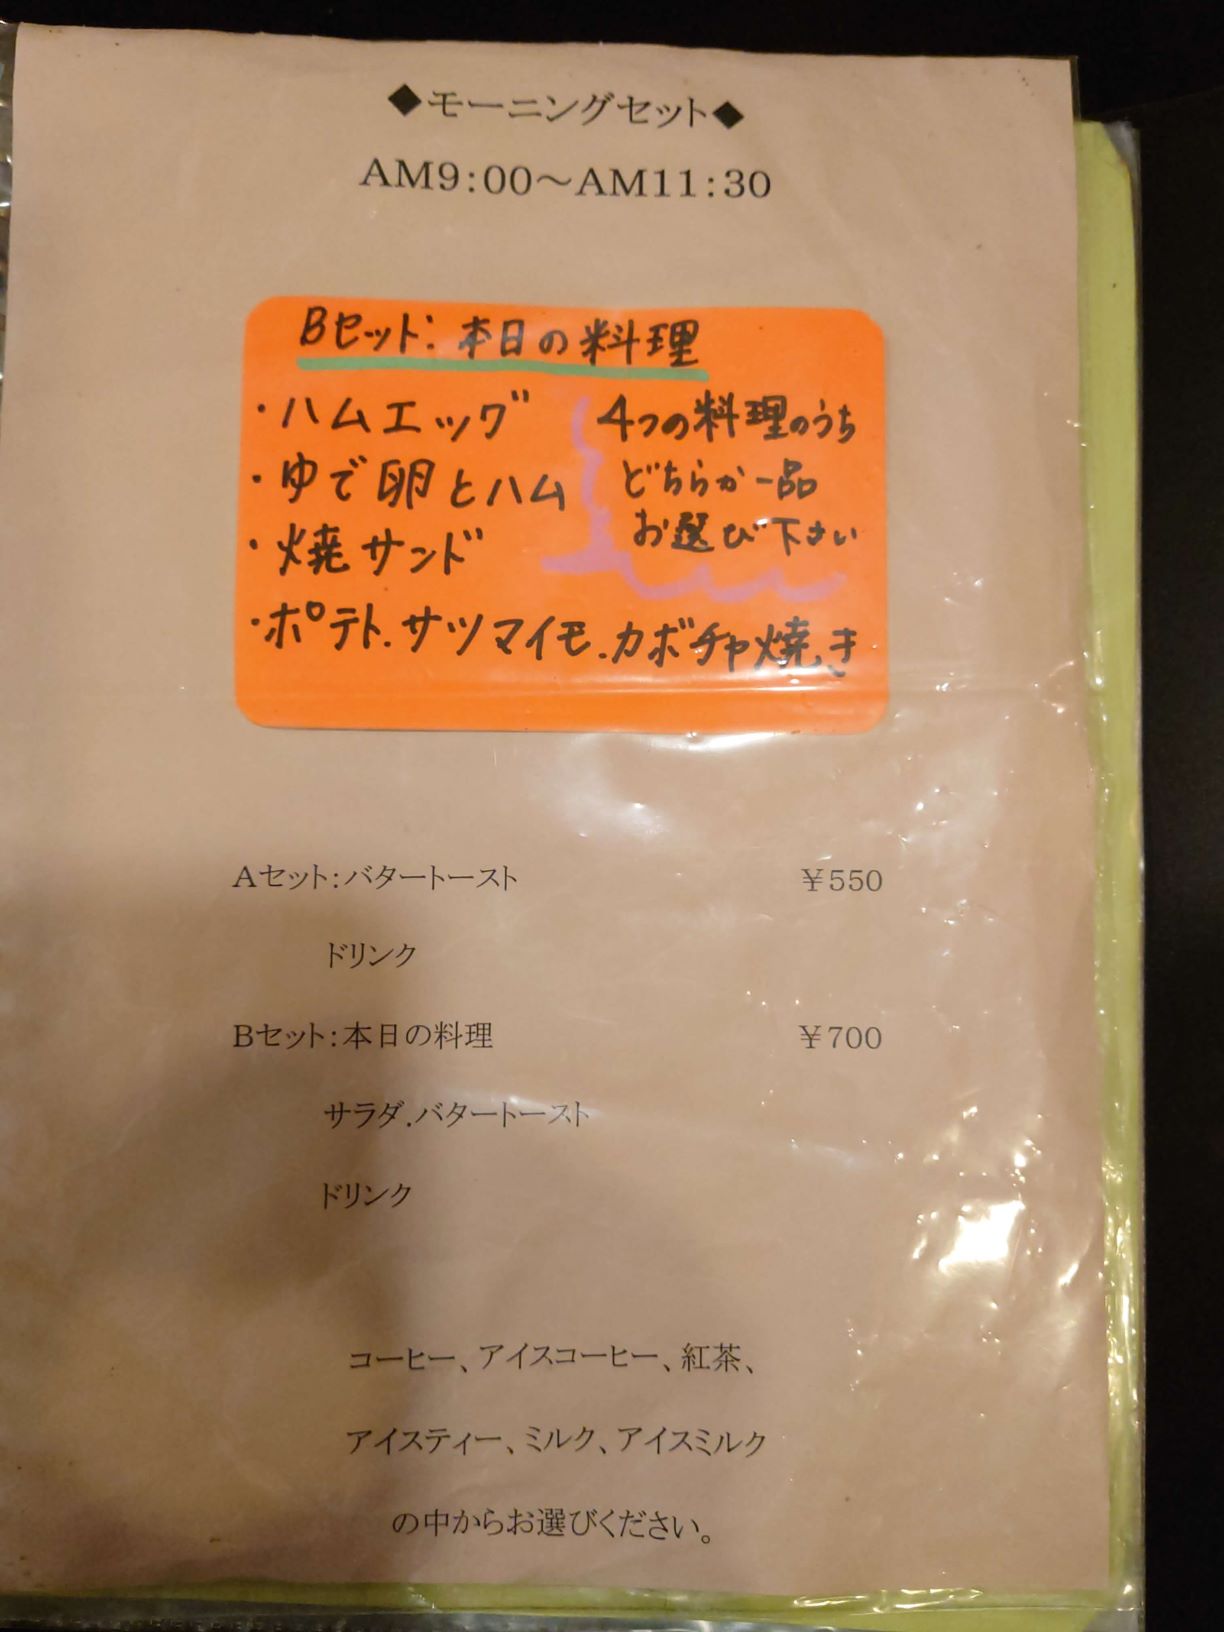 ◆モーニングセット◆
AM9:00～AM11:30
Bセット:本日の料理
・ハムエッグ
・ゆで卵とハム
・焼サンド
4つの料理のうち
どちらか一品
お選び下さい
・ポテト.サツマイモ.カボチャ焼き
Aセット:バタートースト ￥550
ドリンク
Bセット:本日の料理 ￥700
サラダ.バタートースト
ドリンク
コーヒー、アイスコーヒー、紅茶、
アイスティー、ミルク、アイスミルク
の中からお選びください。